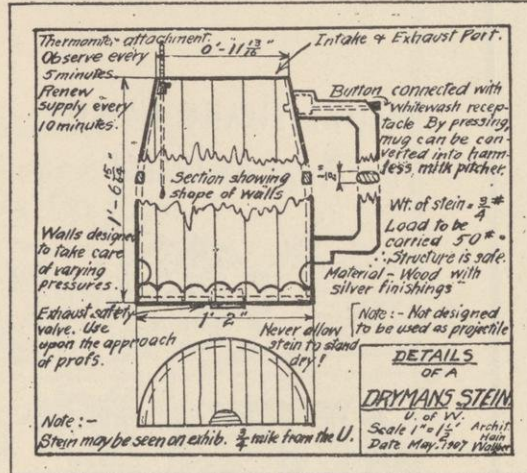 Thermomiter attachment.
Observe every
5 minutes.
Renew
supply every
10 minutes.
0'-11 13/16"
Intake & Exhaust Port.
Button connected with
whitewash recep-
tacle By pressing,
mug can be con-
verted into harm-
less milk pitcher.
1'-6 15/64"
Section showing
shape of walls
Wt. of stein = 3/4 #
Load to be
carried 50#
∴ Structure is safe.
Material - Wood with
silver finishings"
Walls designed
to take care
of varying
pressures.
Exhaust safety
valve. Use
upon the approach
of profs.
1'-2"
Never allow
stein to stand
dry!
Note:- Not designed
to be used as projectile
DETAILS
OF A
DRYMANS STEIN
U. of W.
Scale 1"=1 1/2"
Date May. 1907
Archit.
Hain
Note:-
Stein may be seen on exhib. 3/4 mile from the U.